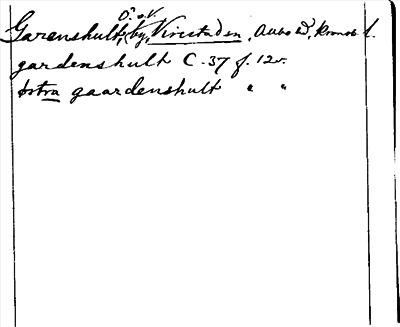 Garenshult, Ö. o. V. by, Virestads sn, Allbo hd, Kronob. l.
gardenshult C. 37 f. 12v.
östra gaardenshult " "